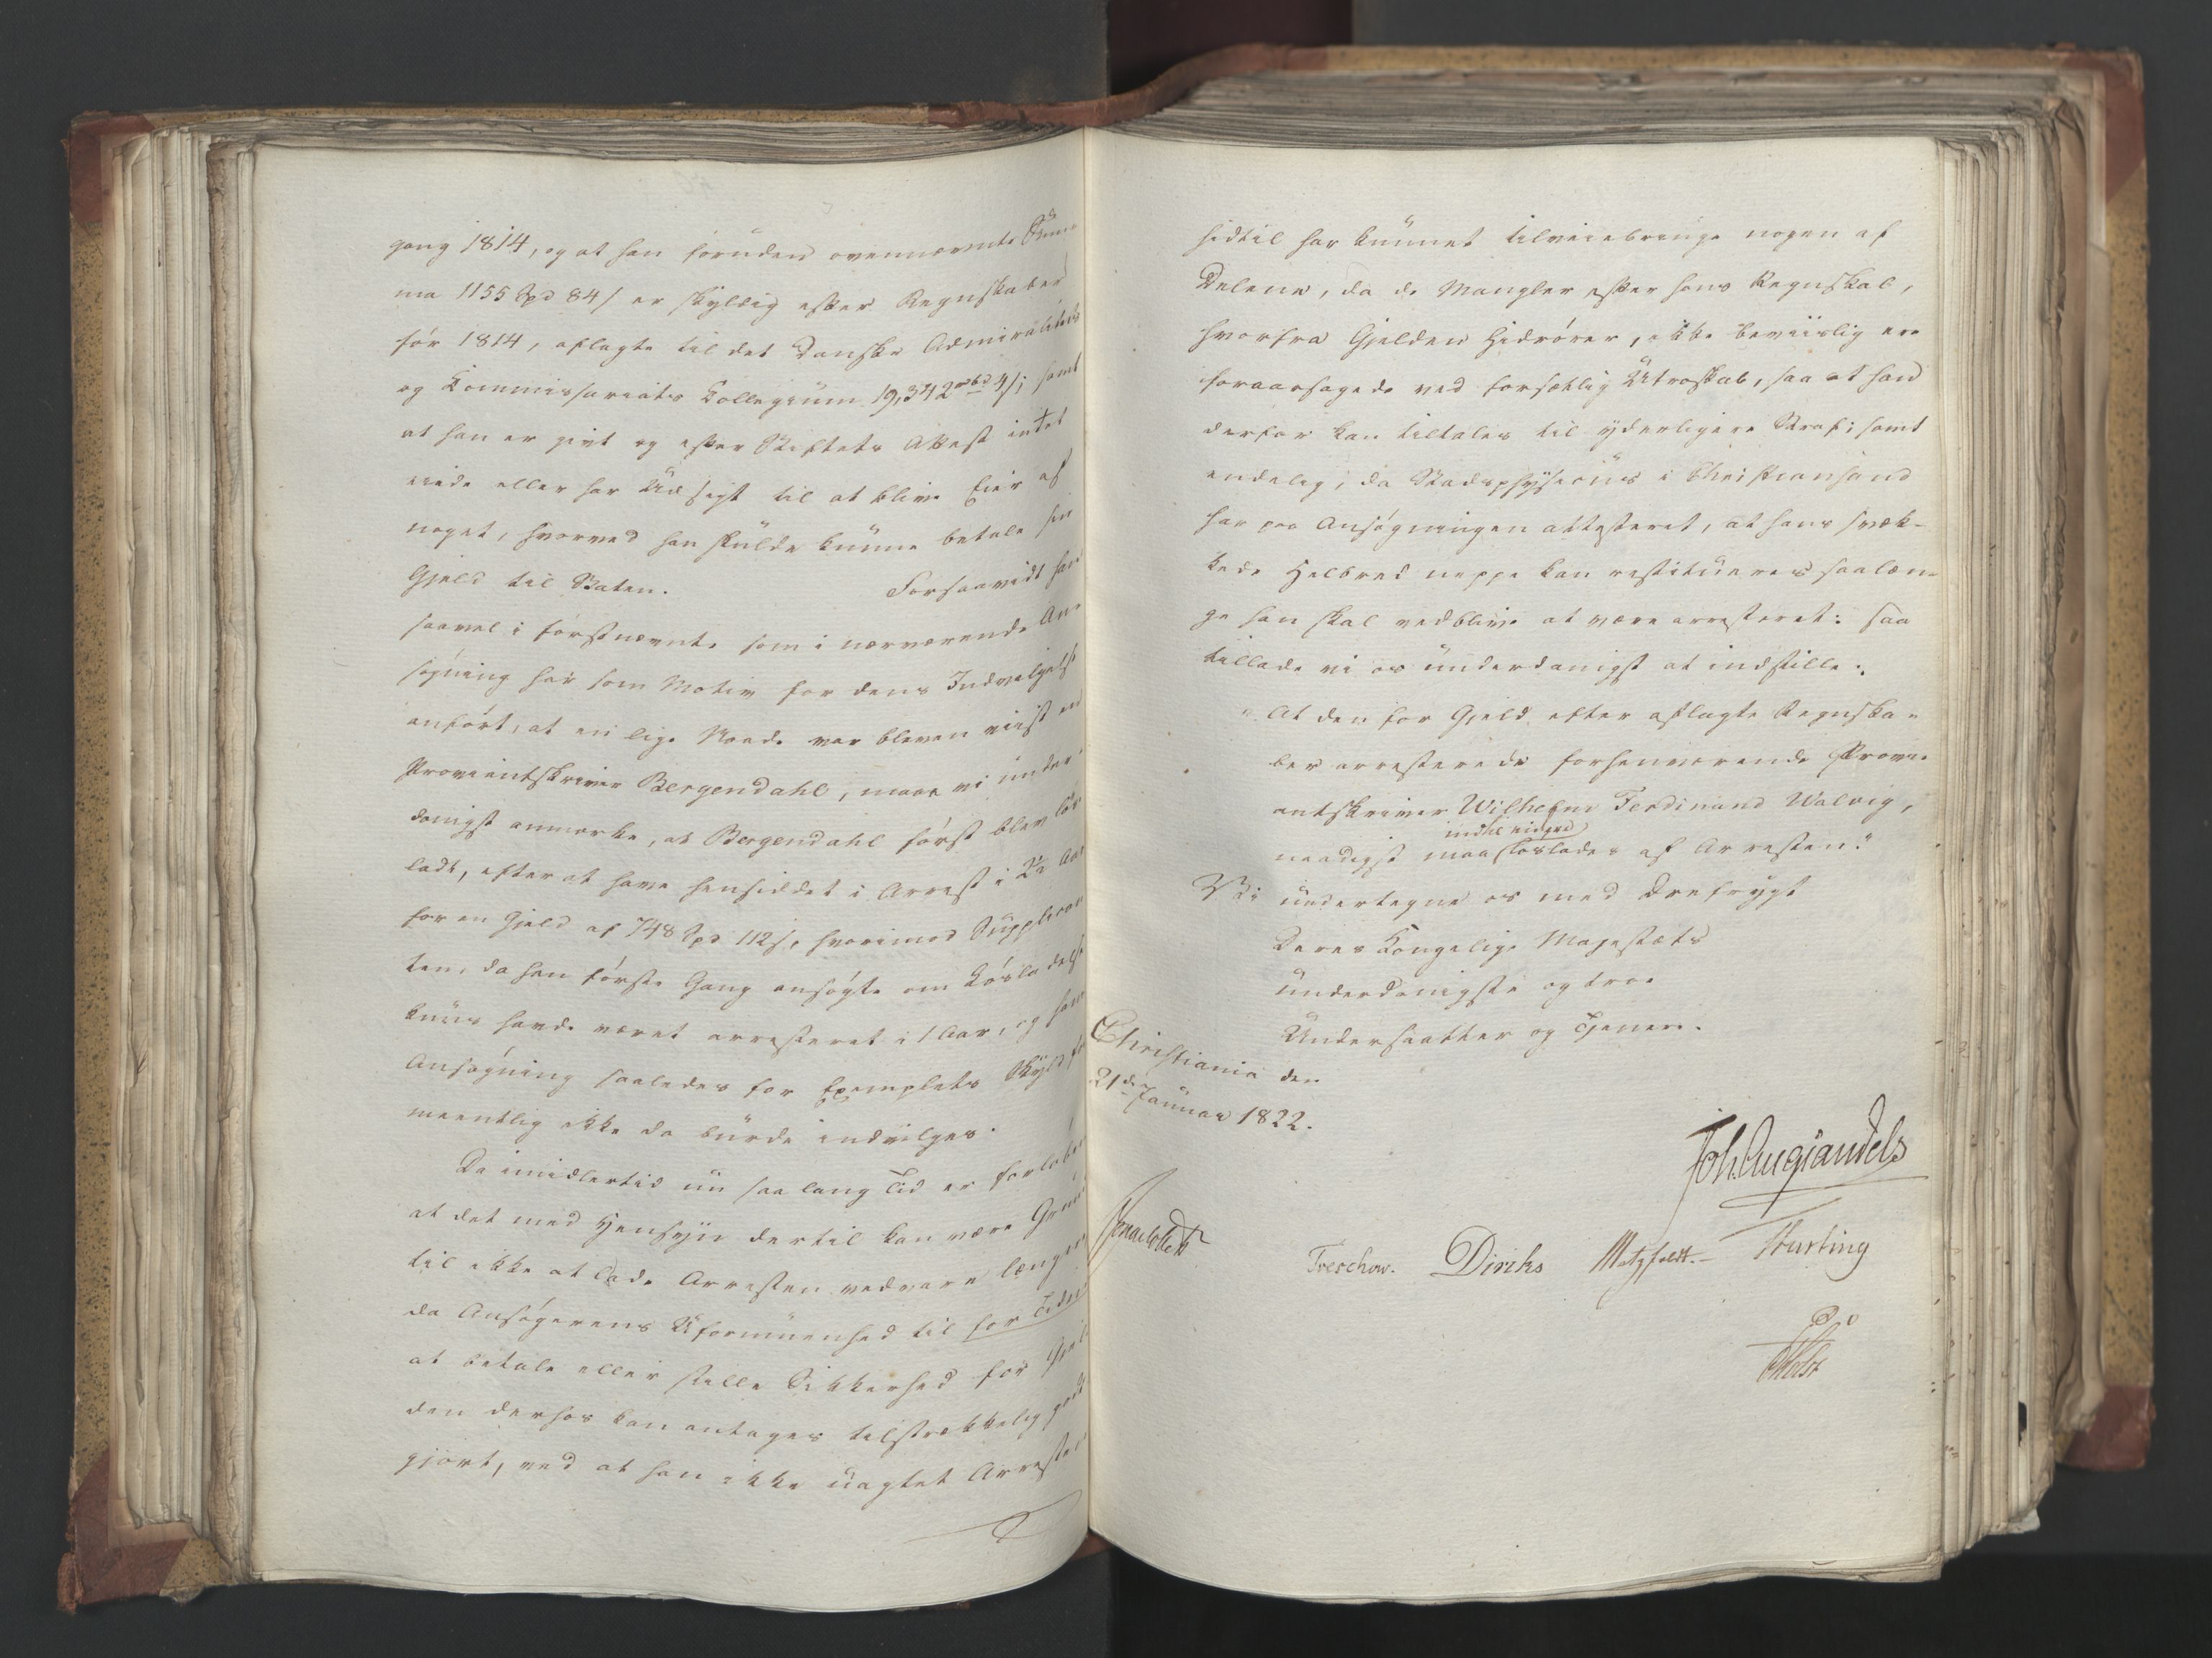 gang 1814, og at han foruden ovennævnte Sum-
ma 1155 Spd 84 s er skyldig efter Regnskaber
før 1814, aflagte til det danske Admiralitets
og Commissariats Collegium 19,342 rbd 4 s; samt
at han er givt og efter Skiftets Attest intet
eiede eller har Udsigt til at blive Eier af
noget, hvorved han skulde kunne betale sin
Gjeld til Staten. Forsaavidt han
saavel i førstnævnte som i nærværende An-
søgning har som Motiv for dens Indvilgelse
anført, at en lige Naade var bleven viist
Proviantskriver Bergendahl, maae vi under-
danigst anmærke, at Bergendahl først blev løs-
ladt, efter at have hensiddet i Arrest i 2½ Aar
for en Gjeld af 748 Spd 112 s, hvorimod Supplican-
ten, da han første Gang ansøgte om Løsladelse
kuns havde været arresteret i 1 Aar, og hans
Ansøgning saaledes for Exemplets Skyld for-
meentlig ikke da burde indvilges.
Da imidlertid nu saa lang Tid er forløben
at det med Hensyn dertil kan være Grund
til ikke at lade Arresten vedvare længer
da Ansøgerens Uformuenhed til for Tiden
at betale eller stille Sikkerhed for Gjel-
den derhos kan antages tilstrækkelig godt-
gjort, ved at han ikke uagtet Arresten
hidtil har kunnet tilveiebringe nogen af
Delene, da de Mangler efter hans Regnskab,
hvorfra Gjelden hidrører, ikke beviislig ere
foraarsagede ved forsætlig Utroskab, saa at han
derfor kan tiltales til yderligere Straf; samt
endelig, da Stadsphysicus i Christiansand
har paa Ansøgningen attesteret, at hans svæk-
kede Helbred neppe kan restitueres saalæn-
ge han skal vedblive at være arresteret: saa
tillade vi os underdanigst at indstille:
"At den for Gjeld efter aflagte Regnska-
ber arresterede forhenværende Provi-
antskriver Wilhelm Ferdinand Walvig,
indtil videre
naadigst maa løslades af Arresten."
Vi undertegne os med Ærefrygt
Deres Kongelige Majestæts
underdanigste og troe
Undersaatter og Tjenere.
Christiania den
21de Januar 1822.
Joh. Aug. Sandels
Treschow. Diriks Motzfeldt. Husting
Holst